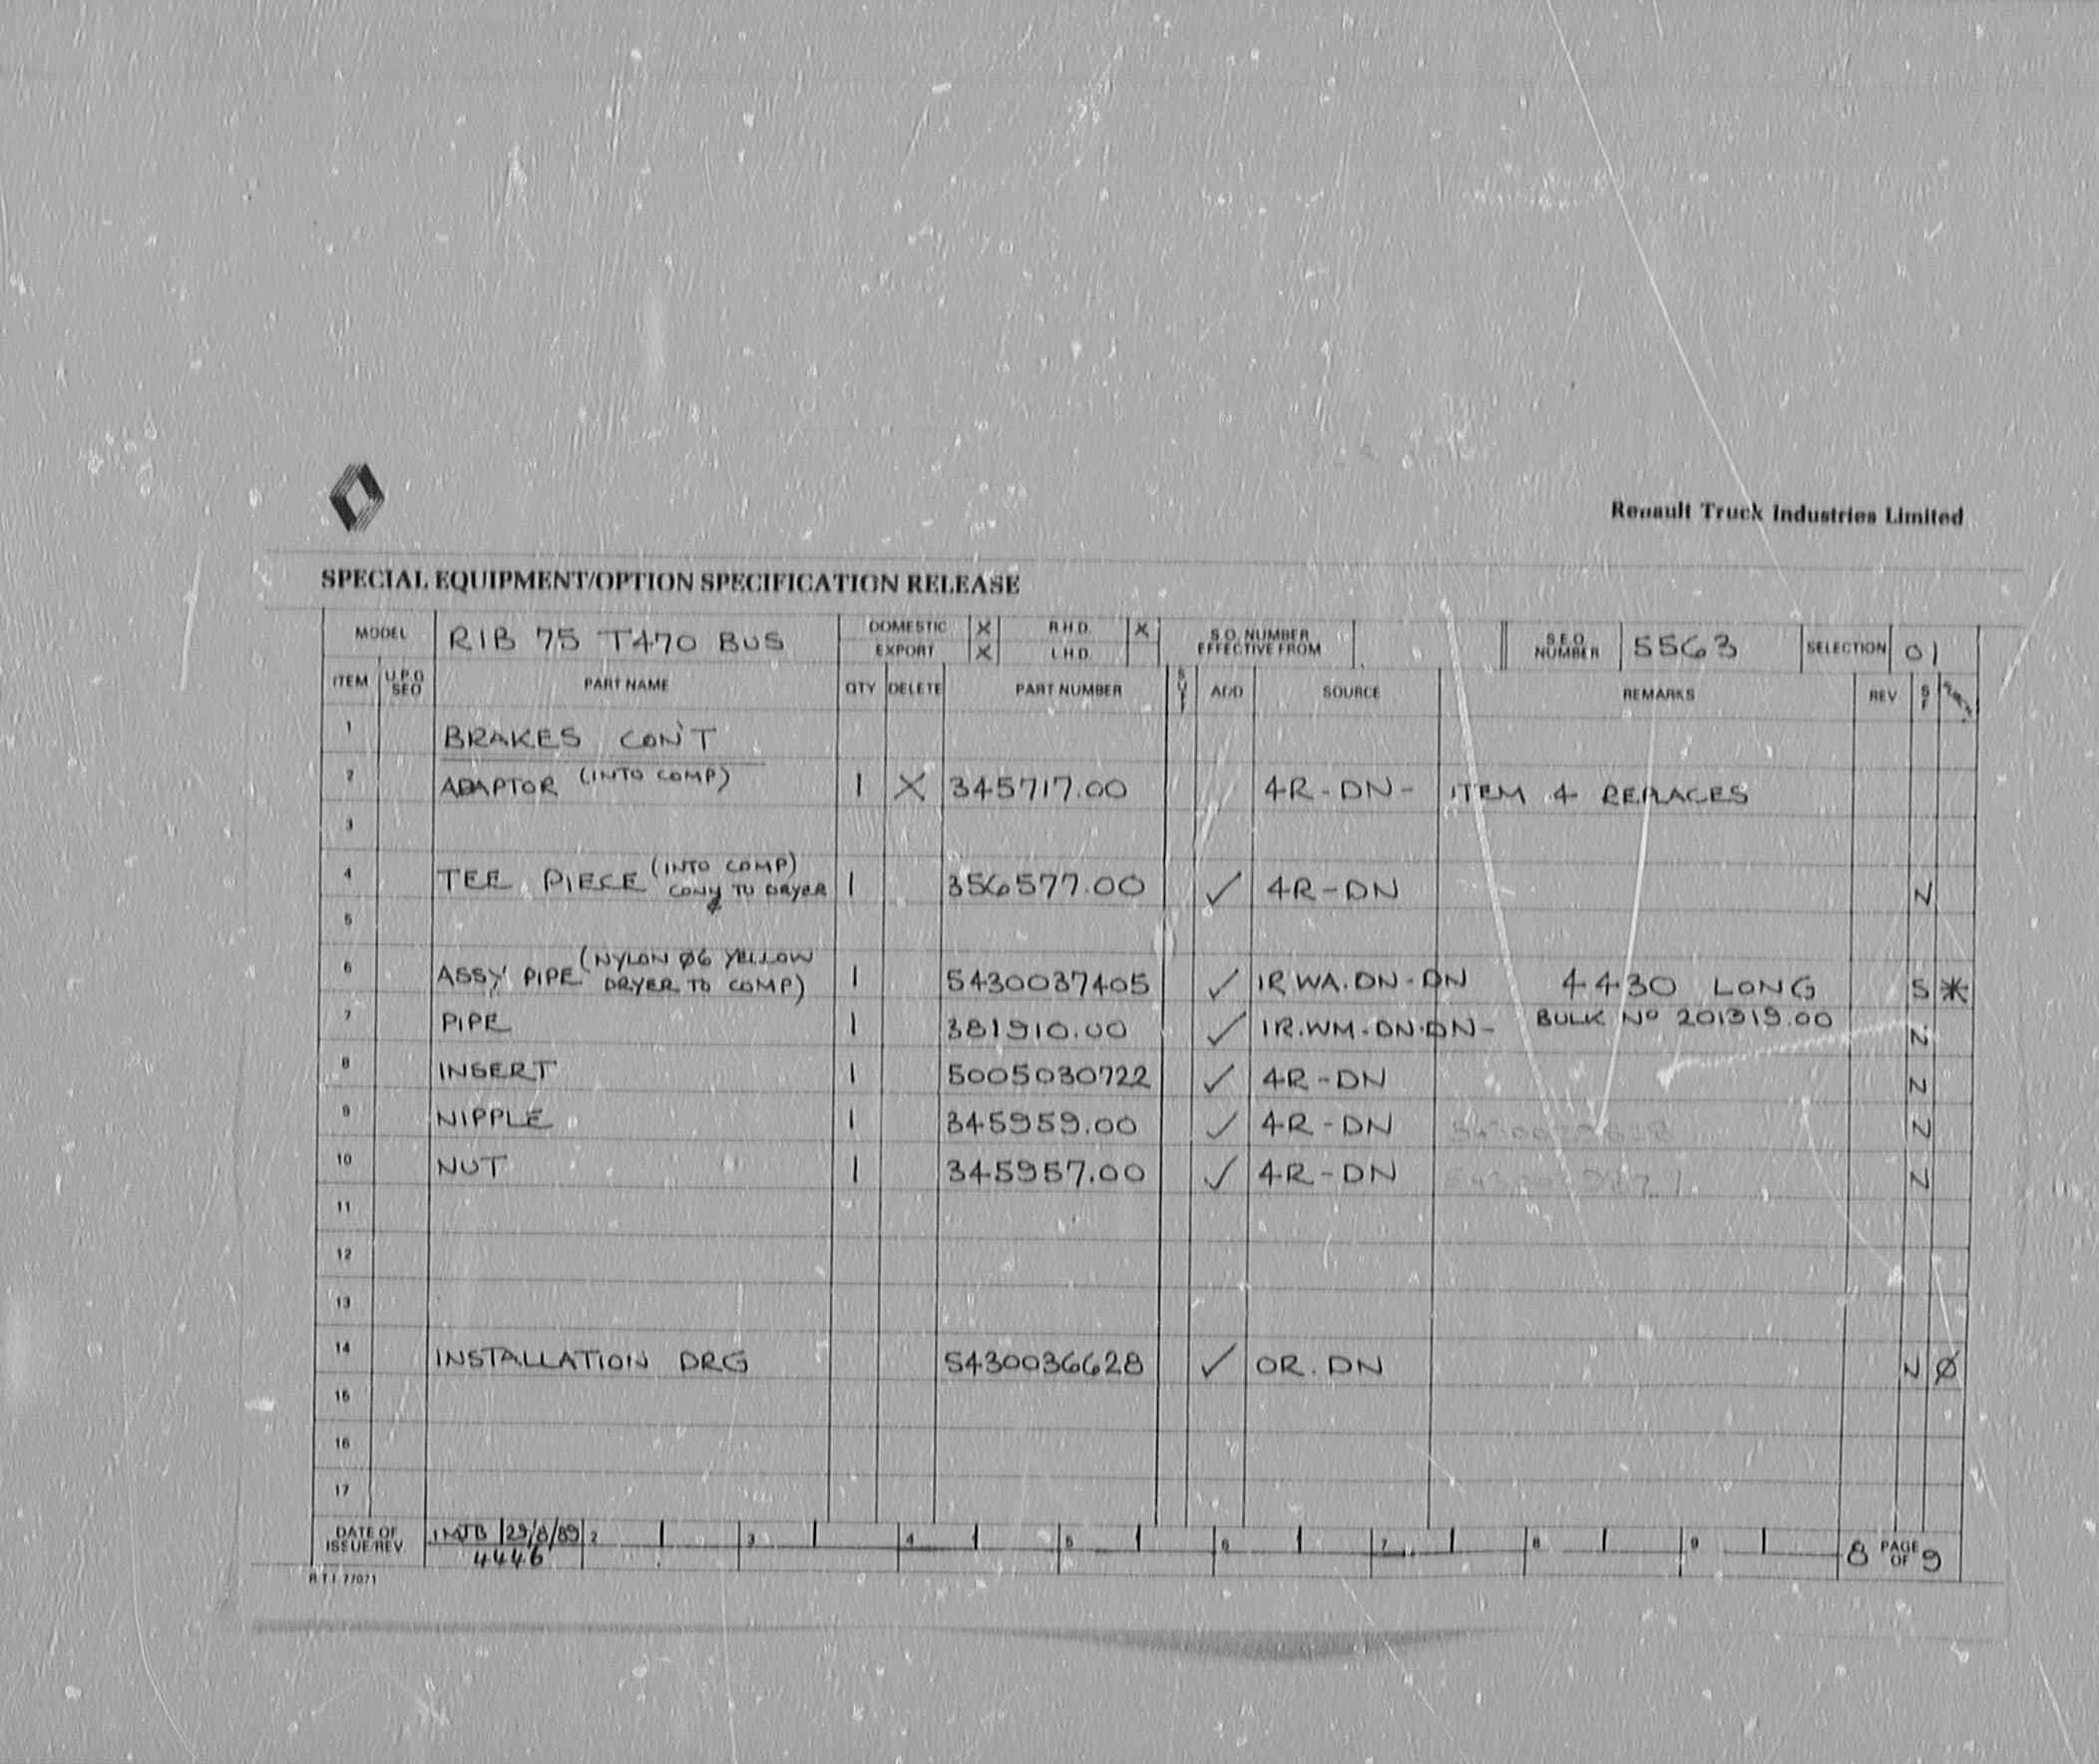 Renault Truck Industries Limited
SPECIAL EQUIPMENT/OPTION SPECIFICATION RELEASE
MODEL RIB 75 T470 BUS DOMESTIC X R.H.D. X S.O. NUMBER EFFECTIVE FROM S.E.O. NUMBER 5563 SELECTION 01
EXPORT X L.H.D.
ITEM U.P.G SEO PART NAME QTY DELETE PART NUMBER ADD SOURCE REMARKS REV S F
1 BRAKES CON'T
2 ADAPTOR (INTO COMP) 1 X 345717.00 4R-DN- ITEM 4 REPLACES
3
4 TEE PIECE (INTO COMP) TO DRYER 1 356577.00 ✓ 4R-DN N
5
6 ASSY PIPE (NYLON Ø6 YELLOW DRYER TO COMP) 1 5430037405 ✓ 1R WA.DN-DN 4430 LONG S *
7 PIPE 1 381910.00 ✓ 1R.WM-DN.DN- BULK Nº 201319.00 N
8 INSERT 1 5005030722 ✓ 4R-DN N
9 NIPPLE 1 345959.00 ✓ 4R-DN N
10 NUT 1 345957.00 ✓ 4R-DN N
11
12
13
14 INSTALLATION DRG 5430036628 ✓ OR.DN N Ø
15
16
17
DATE OF ISSUE/REV. 1 MJB 29/8/89 2 3 4 5 6 7 8 9 8 PAGE OF 9
4446
R.T.I. 77071